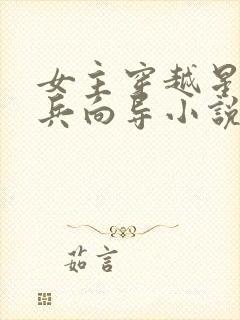 女主穿越星
兵向导小説
茹言